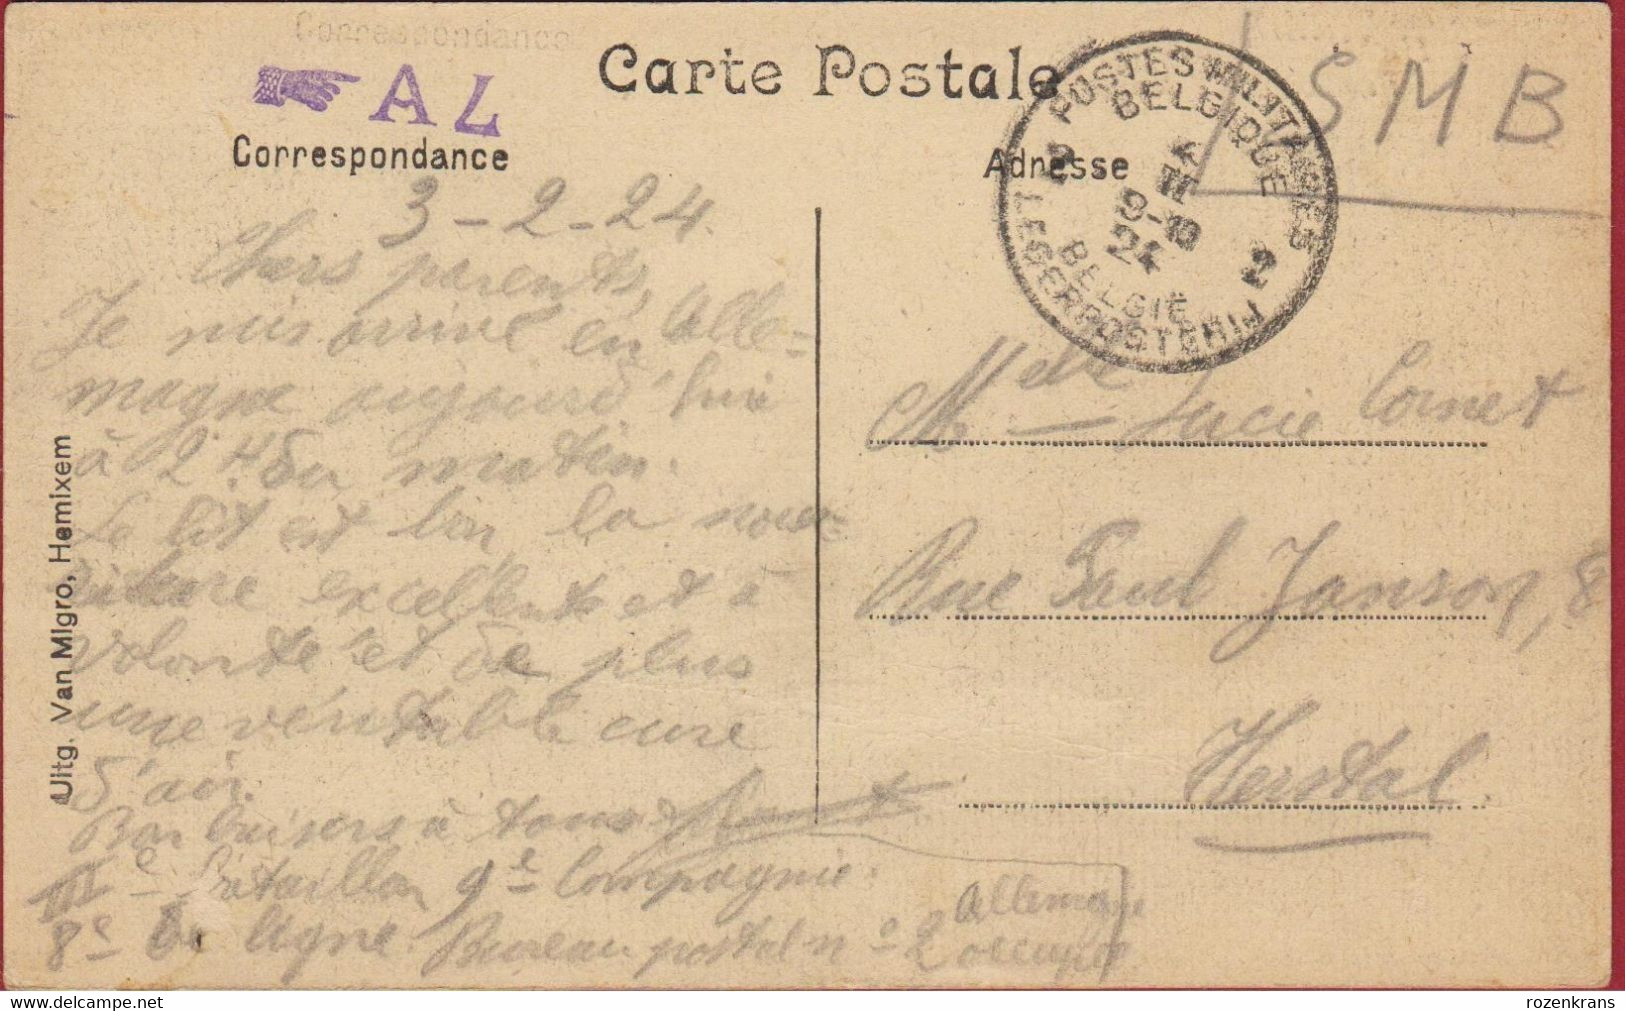 Correspondance
AL
Carte Postale
Correspondance
Adresse
SMB
POSTES MILITAIRES
BELGIQUE
2
II
9-10
24
2
BELGIË
LEGERPOSTERIJ
3-2-24.
Chers parents,
Je suis arrivé en Alle-
magne aujourd'hui
à 2 H. du matin.
Le lit est bon, la nour-
riture excellente et à
volonté et de plus
une véritable cure
d'air.
Bon baisers à tous
IIIe Bataillon 9e Compagnie.
8e de ligne Bureau postal n° 2 Allemagne
occupée
Melle Lucie Cornet
Rue Paul Janson, 8
Herstal.
Uitg. Van Migro, Hemixem
delcampe.net
rozenkrans